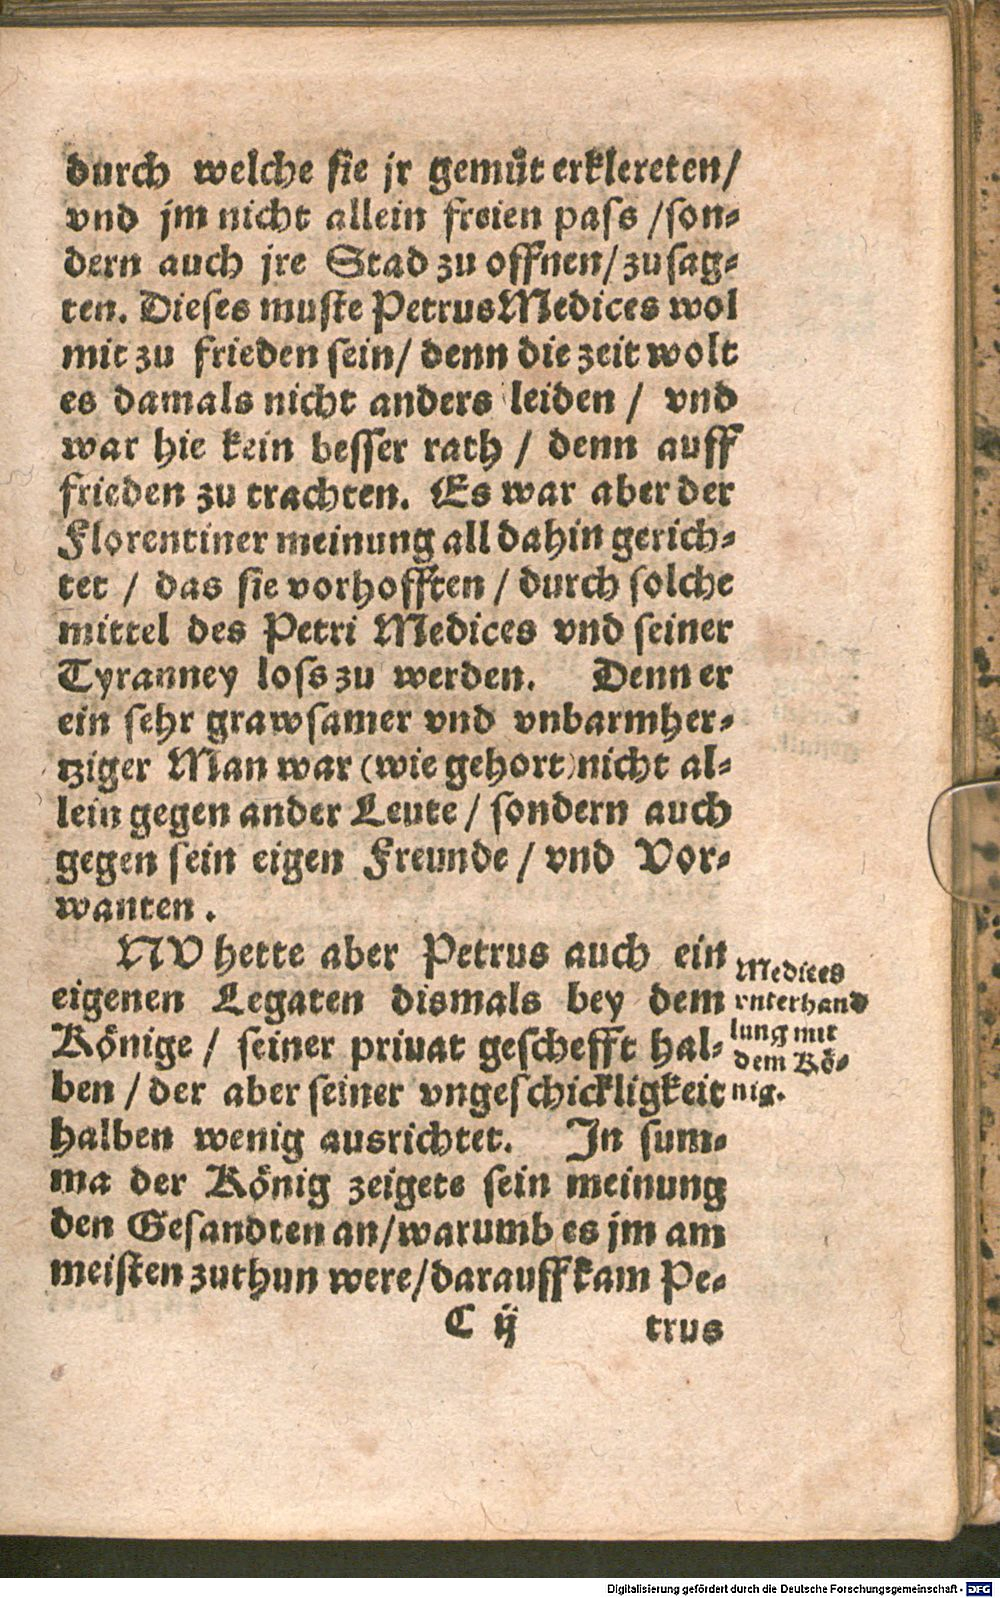 durch welche sie jr gemuͤt erklereten/
vnd jm nicht allein freien pass /son-
dern auch jre Stad zu offnen/ zusag-
ten. Dieses muste Petrus Medices wol
mit zu frieden sein/ denn die zeit wolt
es damals nicht anders leiden / vnd
war hie kein besser rath / denn auff
frieden zu trachten. Es war aber der
Florentiner meinung all dahin gerich-
tet / das sie vorhofften / durch solche
mittel des Petri Medices vnd seiner
Tyranney loss zu werden. Denn er
ein sehr grawsamer vnd vnbarmher-
tziger Man war (wie gehort) nicht al-
lein gegen ander Leute / sondern auch
gegen sein eigen Freunde / vnd Vor-
wanten .
NV hette aber Petrus auch ein
eigenen Legaten dismals bey dem
Könige / seiner priuat geschefft hal-
ben / der aber seiner vngeschickligkeit
halben wenig ausrichtet. In sum-
ma der König zeigets sein meinung
den Gesandten an/ warumb es jm am
meisten zuthun were/ darauff kam Pe-
C ij trus
Medices
vnterhand
lung mit
dem Kö-
nig.
Digitalisierung gefördert durch die Deutsche Forschungsgemeinschaft - DFG